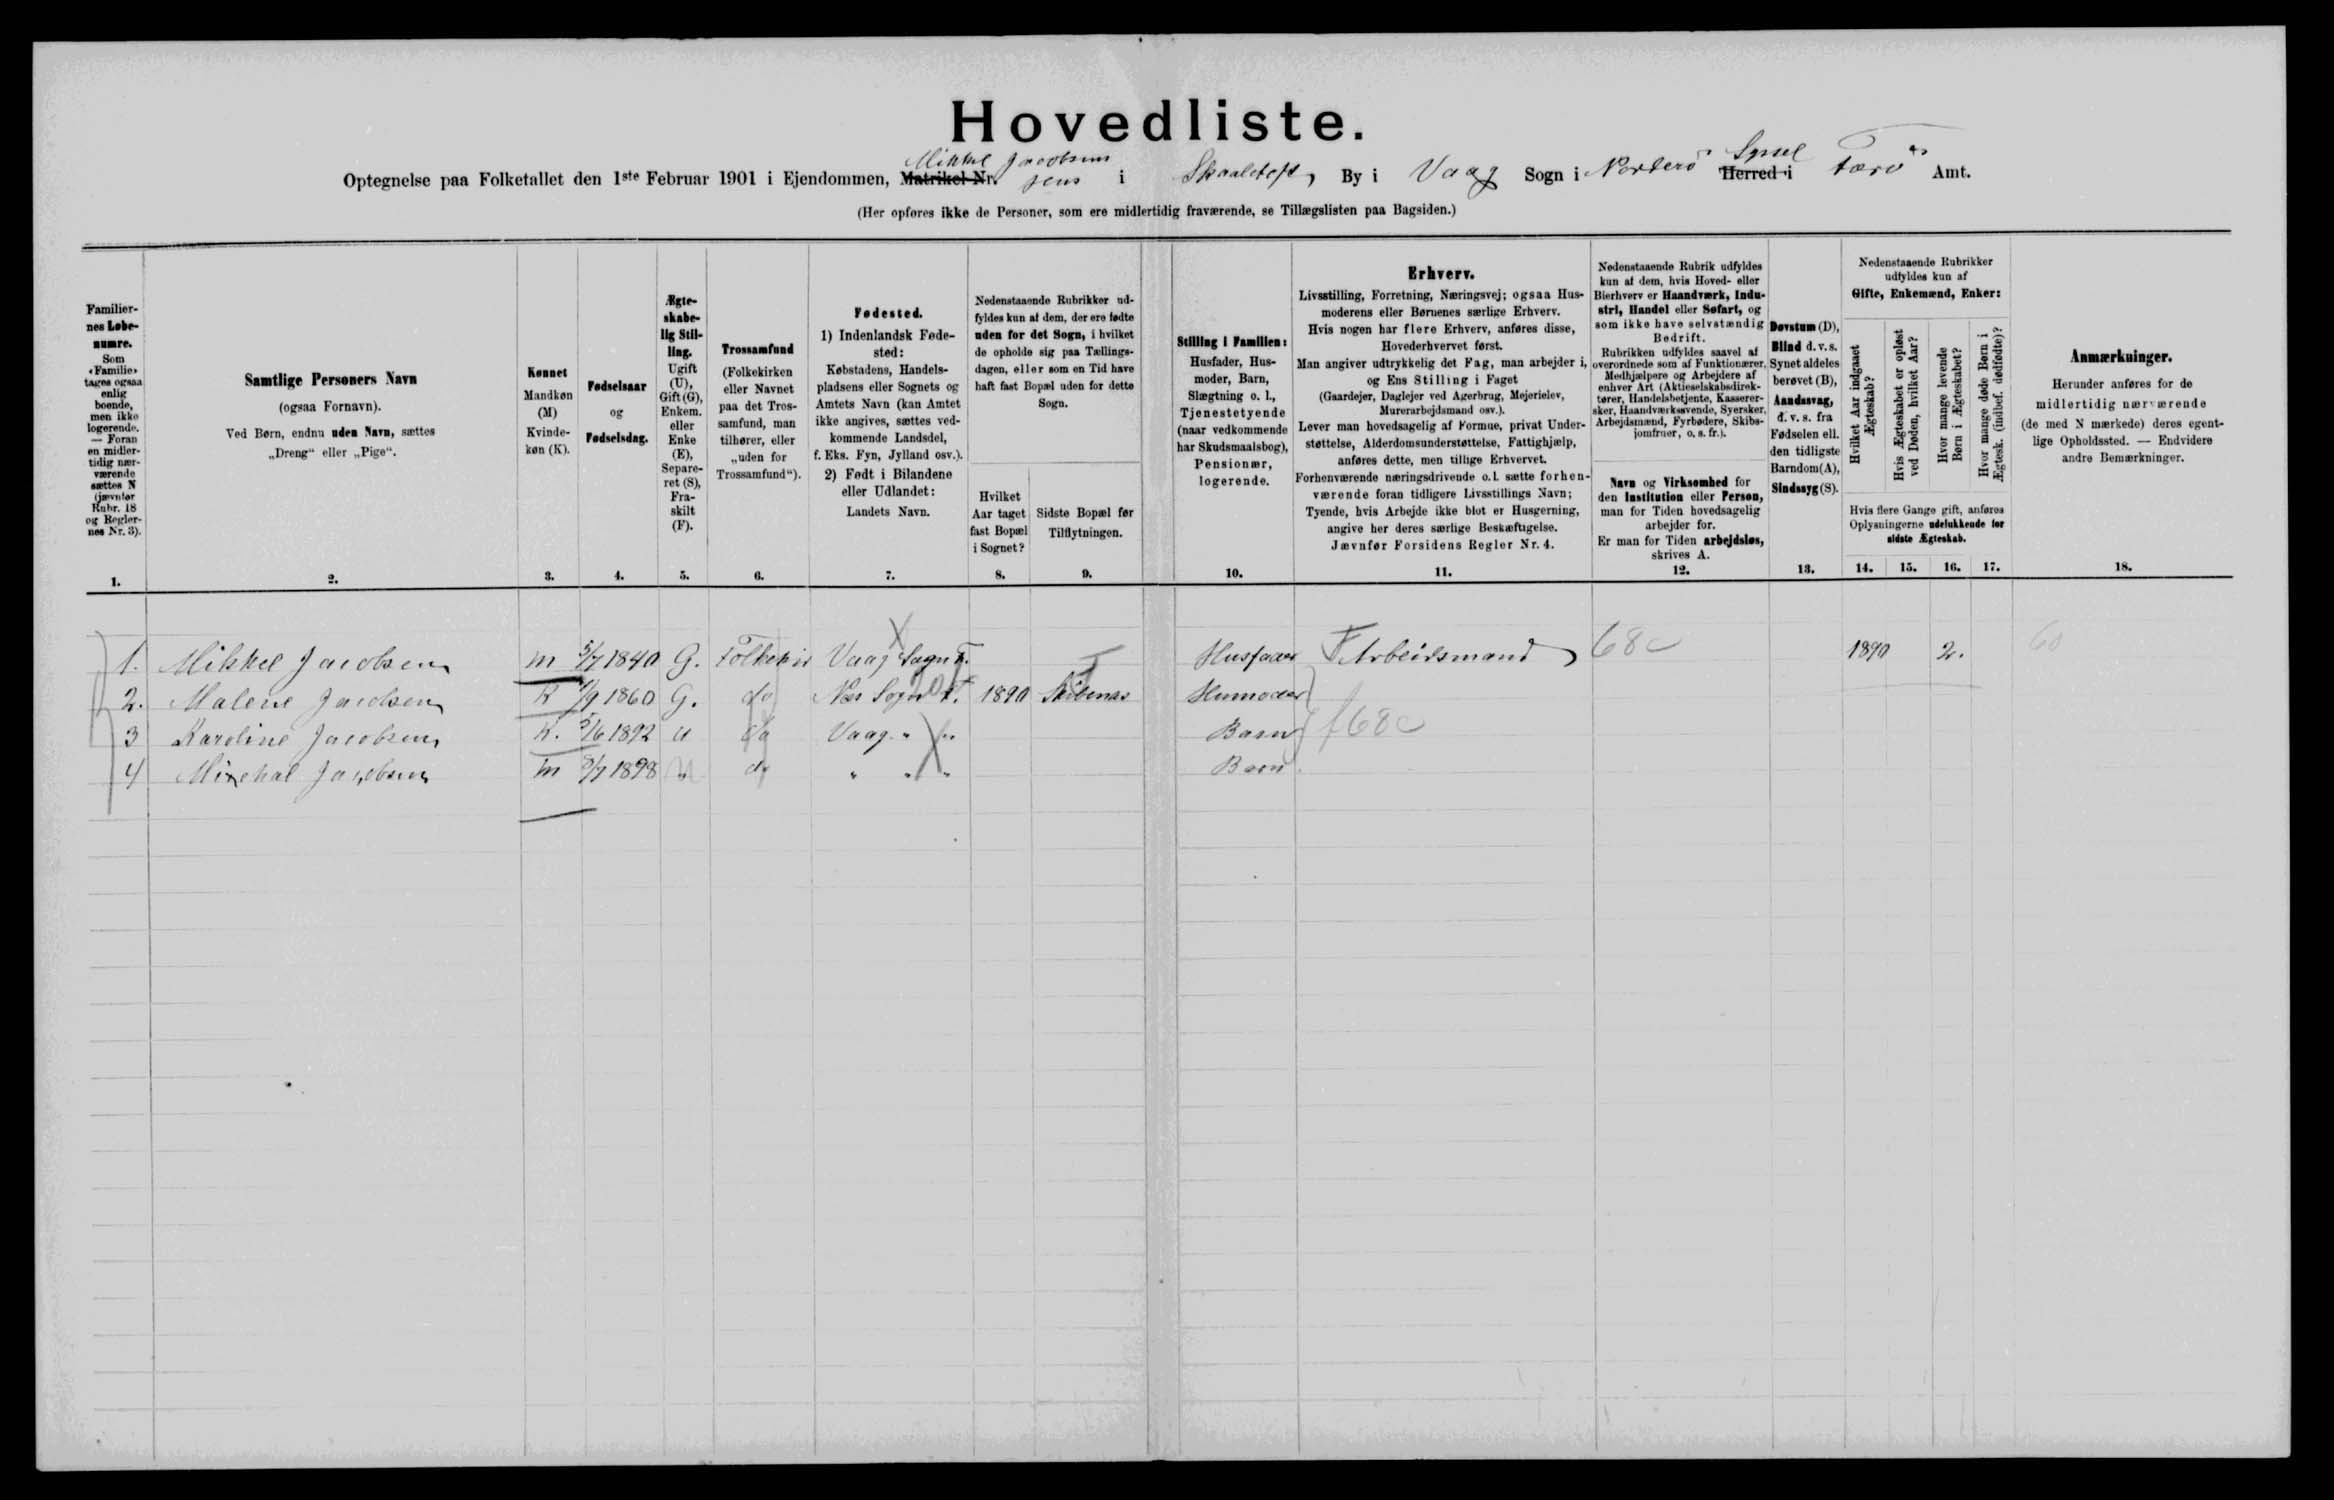 Hovedliste.
Optegnelse paa Folketallet den 1ste Februar 1901 i Ejendommen, Matrikel Nr. Mikkel Jacobsens i Skaaletoft, By i Vaag Sogn i Norderö Syssel Herred i Færö Amt.
(Her opføres ikke de Personer, som ere midlertidig fraværende, se Tillægslisten paa Bagsiden.)
Familier-
nes Løbe-
numre.
Som
«Familie»
tages ogsaa
enlig
boende,
men ikke
logerende.
— Foran
en midler-
tidig nær-
værende
sættes N
(jævnfør
Rubr. 18
og Regler-
nes Nr. 3).
1.
Samtlige Personers Navn
(ogsaa Fornavn).
Ved Børn, endnu uden Navn, sættes
„Dreng“ eller „Pige“.
2.
Kønnet
Mandkøn
(M)
Kvinde-
køn (K).
3.
Fødselsaar
og
Fødselsdag.
4.
Ægte-
skabe-
lig Stil-
ling.
Ugift
(U),
Gift (G),
Enkem.
eller
Enke
(E),
Separe-
ret (S),
Fra-
skilt
(F).
5.
Trossamfund
(Folkekirken
eller Navnet
paa det Tros-
samfund, man
tilhører, eller
„uden for
Trossamfund“).
6.
Fødested.
1) Indenlandsk Føde-
sted:
Købstadens, Handels-
pladsens eller Sognets og
Amtets Navn (kan Amtet
ikke angives, sættes ved-
kommende Landsdel,
f. Eks. Fyn, Jylland osv.).
2) Født i Bilandene
eller Udlandet:
Landets Navn.
7.
Nedenstaaende Rubrikker ud-
fyldes kun af dem, der ere fødte
uden for det Sogn, i hvilket
de opholde sig paa Tællings-
dagen, eller som en Tid have
haft fast Bopæl uden for dette
Sogn.
Hvilket
Aar taget
fast Bopæl
i Sognet?
8.
Sidste Bopæl før
Tilflytningen.
9.
Stilling i Familien:
Husfader, Hus-
moder, Barn,
Slægtning o. l.,
Tjenestetyende
(naar vedkommende
har Skudsmaalsbog),
Pensionær,
logerende.
10.
Erhverv.
Livsstilling, Forretning, Næringsvej; ogsaa Hus-
moderens eller Børnenes særlige Erhverv.
Hvis nogen har flere Erhverv, anføres disse,
Hovederhvervet først.
Man angiver udtrykkelig det Fag, man arbejder i,
og Ens Stilling i Faget
(Gaardejer, Daglejer ved Agerbrug, Mejerielev,
Murerarbejdsmand osv.).
Lever man hovedsagelig af Formue, privat Under-
støttelse, Alderdomsunderstøttelse, Fattighjælp,
anføres dette, men tillige Erhvervet.
Forhenværende næringsdrivende o. l. sætte forhen-
værende foran tidligere Livsstillings Navn;
Tyende, hvis Arbejde ikke blot er Husgerning,
angive her deres særlige Beskæftigelse.
Jævnfør Forsidens Regler Nr. 4.
11.
Nedenstaaende Rubrik udfyldes
kun af dem, hvis Hoved- eller
Bierhverv er Haandværk, Indu-
stri, Handel eller Søfart, og
som ikke have selvstændig
Bedrift.
Rubrikken udfyldes saavel af
overordnede som af Funktionærer,
Medhjælpere og Arbejdere af
enhver Art (Aktieselskabsdirek-
tører, Handelsbetjente, Kasserer-
sker, Haandværkssvende, Syersker,
Arbejdsmænd, Fyrbødere, Skibs-
jomfruer, o. s. fr.).
Navn og Virksomhed for
den Institution eller Person,
man for Tiden hovedsagelig
arbejder for.
Er man for Tiden arbejdsløs,
skrives A.
12.
Døvstum (D),
Blind d. v. s.
Synet aldeles
berøvet (B),
Aandssvag,
d. v. s. fra
Fødselen ell.
den tidligste
Barndom (A),
Sindssyg (S).
13.
Nedenstaaende Rubrikker
udfyldes kun af
Gifte, Enkemænd, Enker:
Hvilket Aar indgaaet
Ægteskab?
Hvis Ægteskabet er opløst
ved Døden, hvilket Aar?
Hvor mange levende
Børn i Ægteskabet?
Hvor mange døde Børn i
Ægtesk. (indbef. dødfødte)?
Hvis flere Gange gift, anføres
Oplysningerne udelukkende for
sidste Ægteskab.
14. 15. 16. 17.
Anmærkninger.
Herunder anføres for de
midlertidig nærværende
(de med N mærkede) deres egent-
lige Opholdssted. — Endvidere
andre Bemærkninger.
18.
1. Mikkel Jacobsen m 5/7 1840 G. Folkekir Vaag Sogn F. Husfader Arbeidsmand 68c 1890 2. 60
2. Malene Jacobsen K /9 1860 G. do Næs Sogn F. 1890 Husmoder
3 Karoline Jacobsen K. 5/6 1892 U do Vaag " " Barn f68c
4 Michal Jacobsen m /7 1898 " do " " " Barn